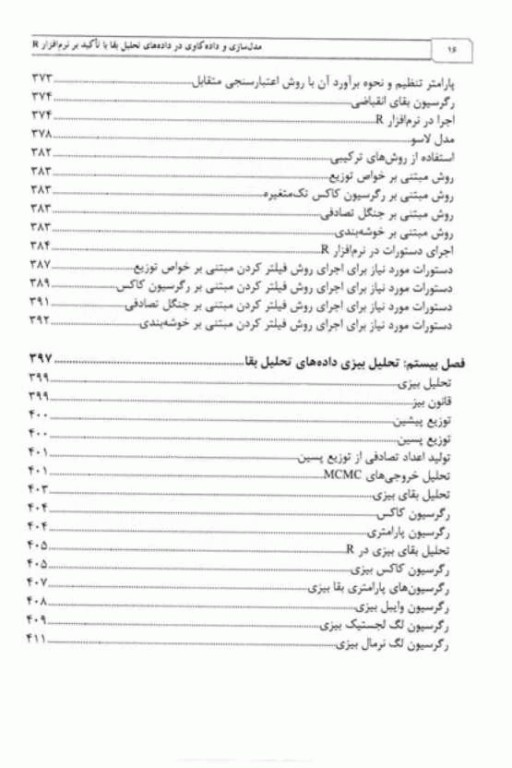 ۱۶ مدل‌سازی و داده‌کاوی در داده‌های تحلیل بقا با تأکید بر نرم‌افزار R
پارامتر تنظیم و نحوه برآورد آن با روش اعتبارسنجی متقابل ۳۷۳
رگرسیون بقای انقباضی ۳۷۴
اجرا در نرم‌افزار R ۳۷۴
مدل لاسو ۳۷۸
استفاده از روش‌های ترکیبی ۳۸۲
روش مبتنی بر خواص توزیع ۳۸۳
روش مبتنی بر رگرسیون کاکس تک‌متغیره ۳۸۳
روش مبتنی بر جنگل تصادفی ۳۸۳
روش مبتنی بر خوشه‌بندی ۳۸۳
اجرای دستورات در نرم‌افزار R ۳۸۴
دستورات مورد نیاز برای اجرای روش فیلتر کردن مبتنی بر خواص توزیع ۳۸۷
دستورات مورد نیاز برای اجرای روش فیلتر کردن مبتنی بر رگرسیون کاکس ۳۸۹
دستورات مورد نیاز برای اجرای روش فیلتر کردن مبتنی بر جنگل تصادفی ۳۹۱
دستورات مورد نیاز برای اجرای روش فیلتر کردن مبتنی بر خوشه‌بندی ۳۹۲
فصل بیستم: تحلیل بیزی داده‌های تحلیل بقا ۳۹۷
تحلیل بیزی ۳۹۹
قانون بیز ۳۹۹
توزیع پیشین ۴۰۰
توزیع پسین ۴۰۰
تولید اعداد تصادفی از توزیع پسین ۴۰۱
تحلیل خروجی‌های MCMC ۴۰۱
تحلیل بقای بیزی ۴۰۳
رگرسیون کاکس ۴۰۴
رگرسیون پارامتری ۴۰۴
تحلیل بقای بیزی در R ۴۰۵
رگرسیون کاکس بیزی ۴۰۵
رگرسیون‌های پارامتری بقا بیزی ۴۰۷
رگرسیون وایبل بیزی ۴۰۸
رگرسیون لگ لجستیک بیزی ۴۰۹
رگرسیون لگ نرمال بیزی ۴۱۱